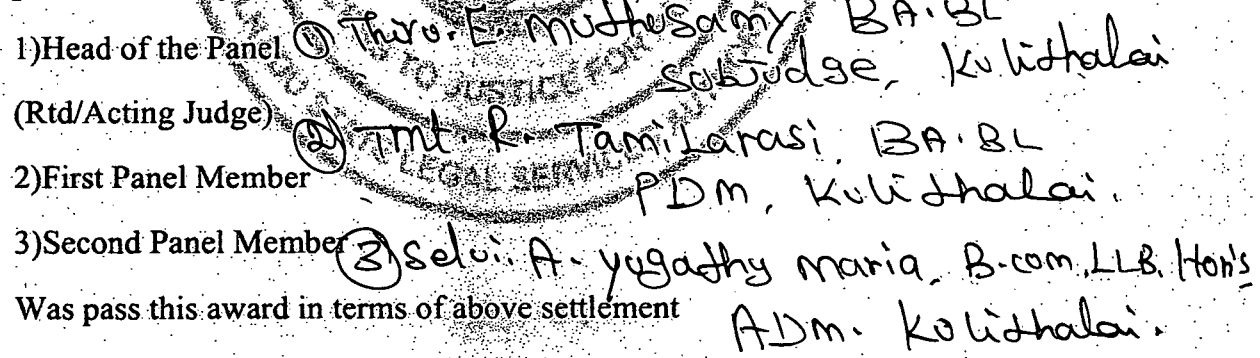 1)Head of the Panel ① Thiru. E. Muthusamy. BA.BL
Subjudge, Kulithalai
(Rtd/Acting Judge)
② Tmt. R. Tamilarasi, BA.BL
2)First Panel Member
PDM, Kulithalai.
3)Second Panel Member ③ Selvi. A. yugadhy maria, B.com,LLB, Hon's
Was pass this award in terms of above settlement
ADM. Kulithalai.
TO JUSTICE FOR
LEGAL SERVIC